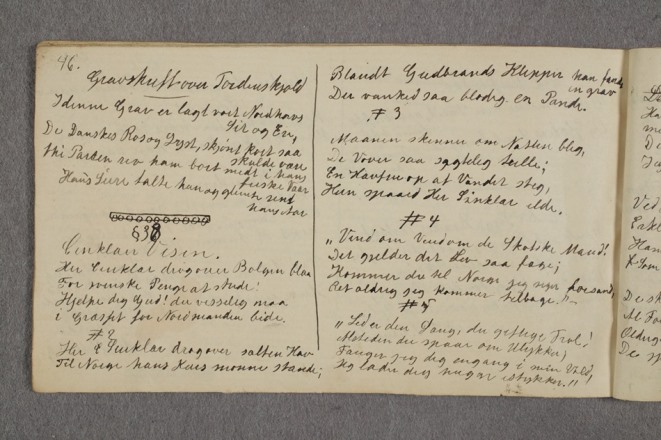 46.
Gravskrift over Tordenskjold
I denne Grav er lagt vort Nordhavs
Sir og Er,
De Danskes Ros og Lyst, skjønt kort saa
skulde være
thi Parsen rev ham bort midt i hans
ferske Vaar
Hans Seire talte han og glemte sent
hans Aar
§38
Cinklar Visen.
Her Cinklar drog over Bølgen blaa
For svenske Penge at stride:
Hjelpe dig Gud! du visselig maa
i Græsset for Nordmanden bide.
# 2
Her Sinklar drog over salten Hav
Til Norge hans Kurs monne stande;
Blandt Gudbrands Klipper han fandt
sin grav
Der vanked saa blodig en Pande.
# 3
Maanen skinner om Natten bleg,
De Vover saa sagtelig trille;
En Havfru op af Vandet steg,
Hun spaaed Her Sinklar ilde.
# 4
"Vend om Vend om de Skotske Mand!
Det gjelder dit Liv saa fage;
Kommer du til Norge jeg siger forsand,
Ret aldrig jeg kommer tilbage."
# 5
"Led er din Sang, du giftige Trol!
Altiden du spaar om Ulykker,
Fanger jeg dig engang i min Vold,
Jeg lader dig hugge i stykker."